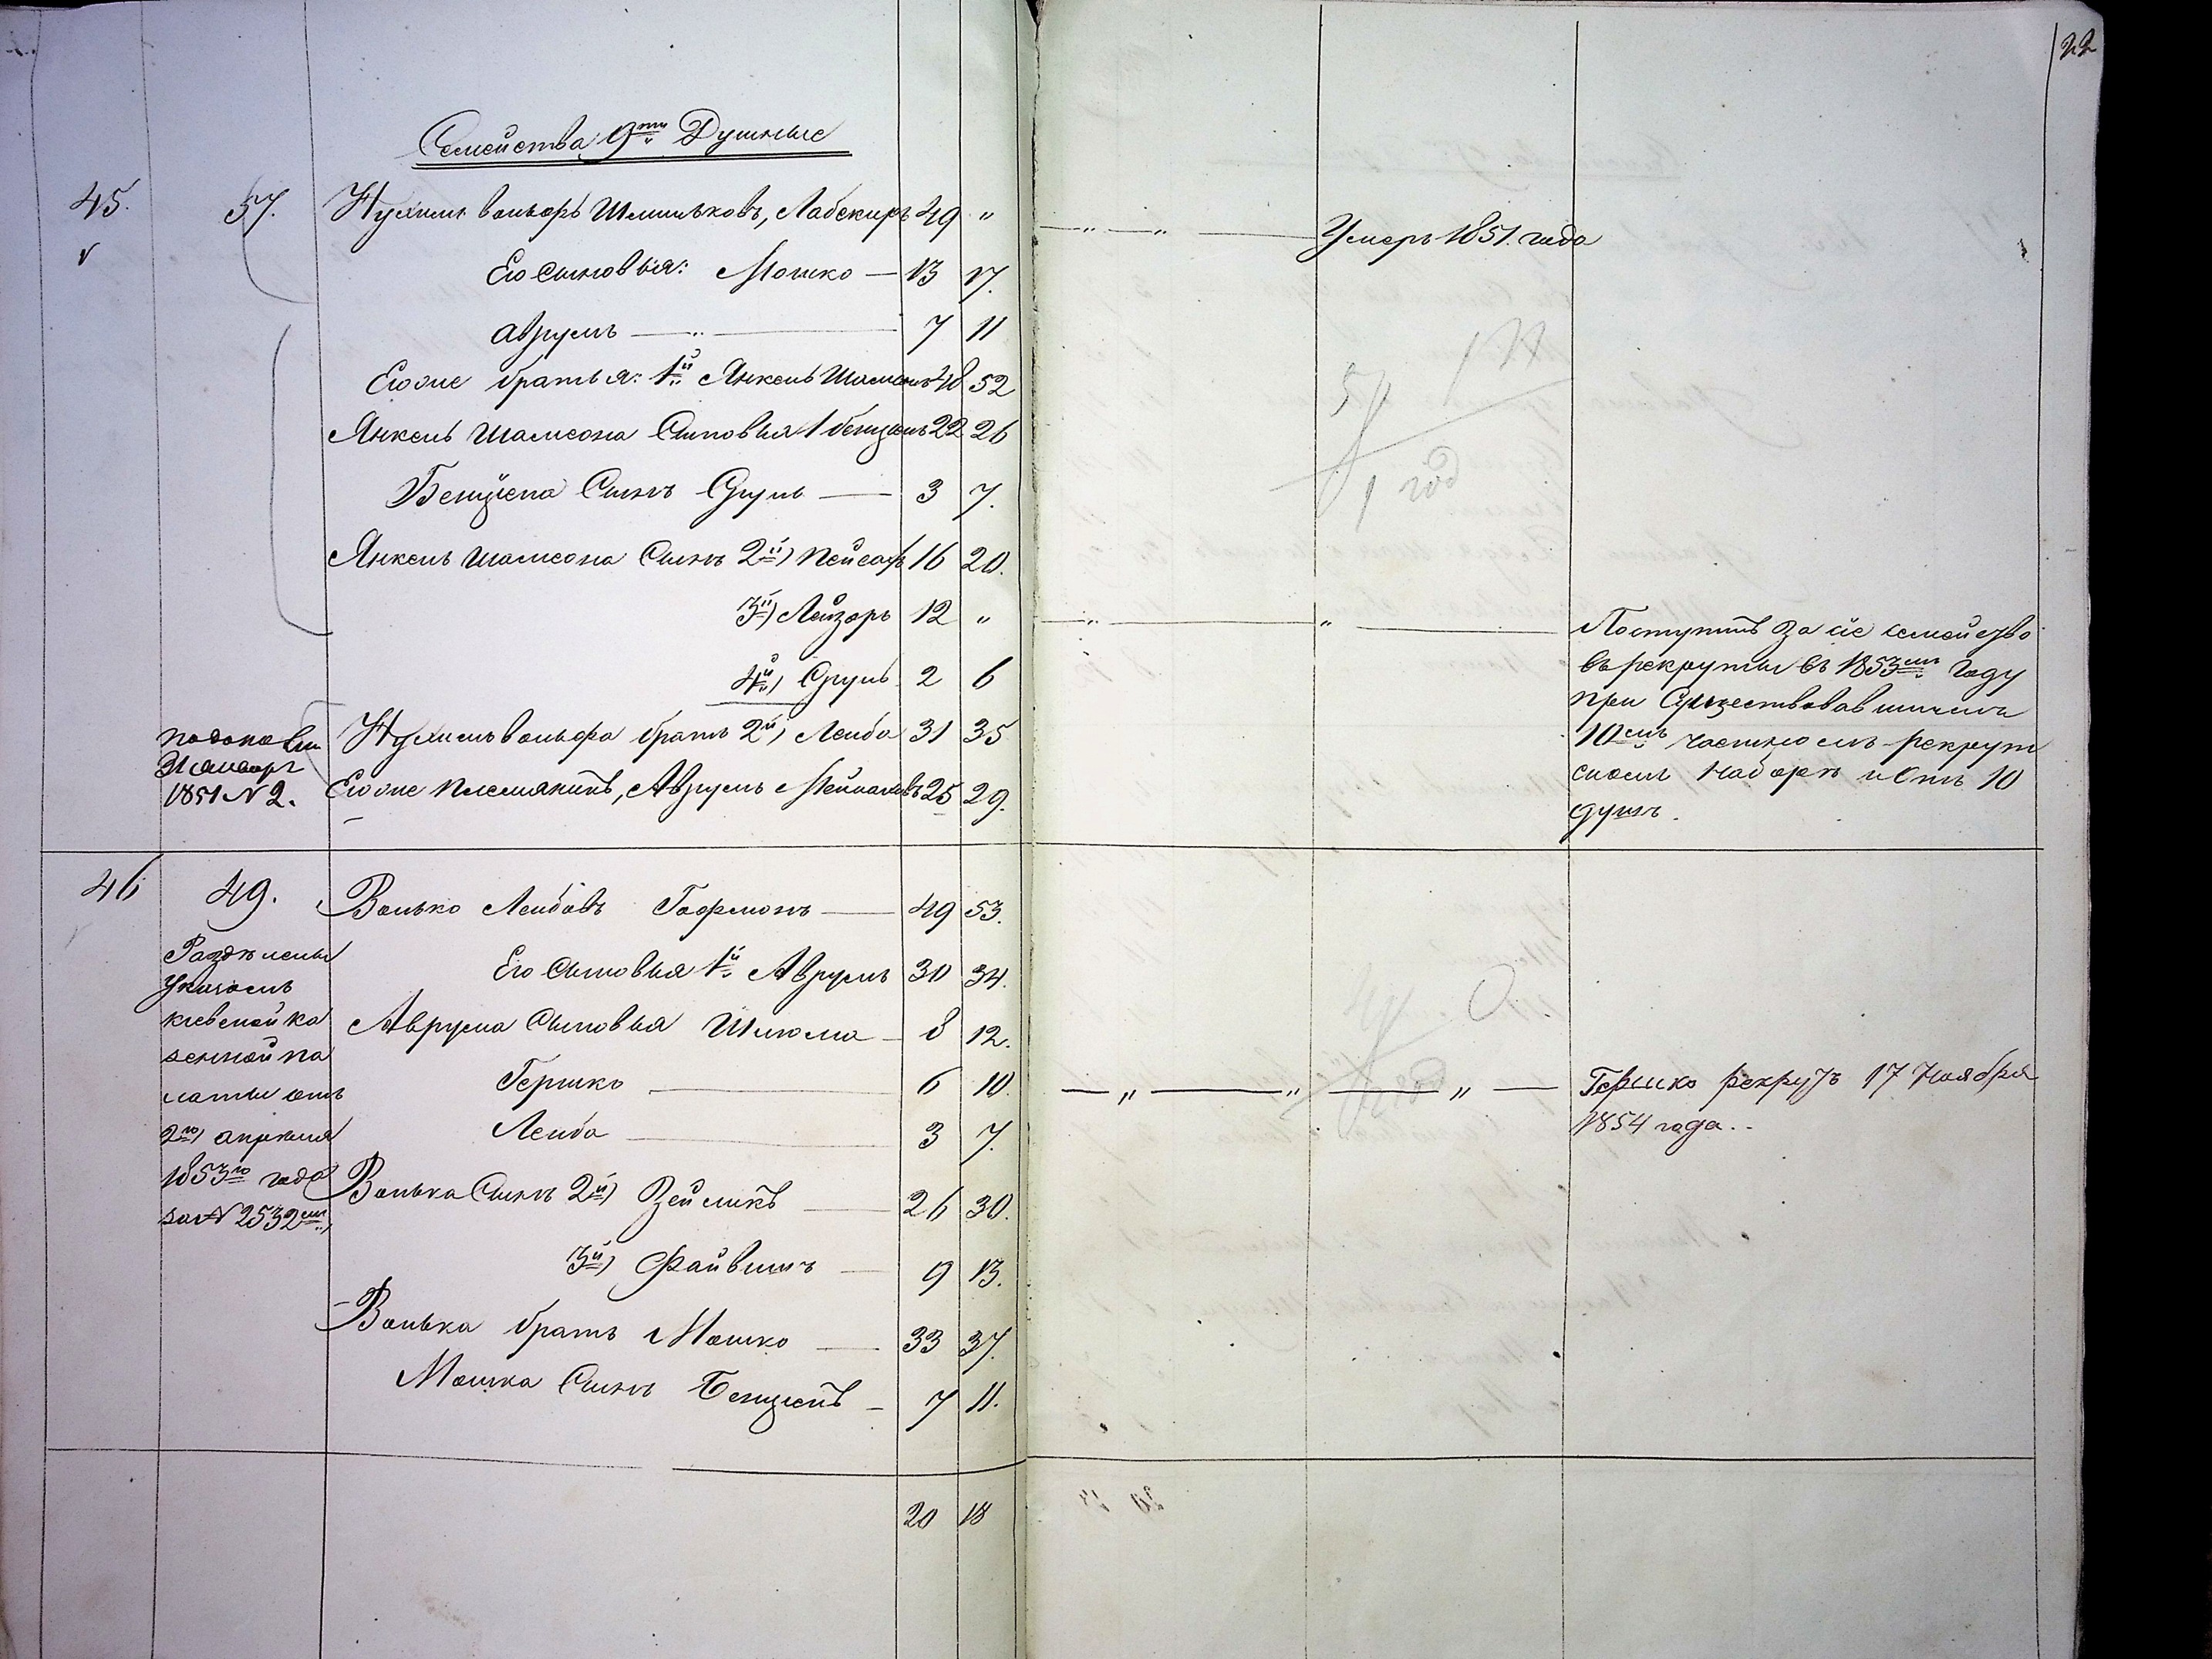 22
Семейства 9ти Душные
45. 57. Нухимъ вольфъ Шмильковъ, Лабскиръ 49 "
Его сыновья: Мошко — 13 17.
Аврумъ — " — 7 11
Его же братья: 1й Янкель Шамсонъ 48 52
Янкель Шамсона Сыновья 1 бенционъ 22 26
Бенциона Сынъ Сруль — 3 7.
Янкель Шамсона Сынъ 2й) Пейсахъ 16 20.
3й) Лейзоръ 12 "
4й) Сруль 2 6
Нухимъ вольфа братъ 2й) Лейба 31 35
Его же племянникъ, Аврумъ 25 29.
1851 N 2.
— " — " — Умеръ 1851. года
1 14
57
1 год
— " — " — Поступилъ за сіе семейство
въ рекруты въ 1853мъ году
при Существовавшимъ
10мъ частномъ рекрут
скомъ наборѣ и Отъ 10
душъ.
46 49. Волько Лейбовъ Гофманъ — 49 53.
Его сыновья 1й Аврумъ 30 34.
Аврума сыновья Шлюма — 8 12.
Гершко — 6 10.
Лейба — 3 7.
Волька Сынъ 2й) Зейликъ — 26 30.
3й) Файвишъ — 9 13.
Волька братъ Мошко — 33 37.
Мошка Сынъ Бенционъ — 7 11.
Раздѣлены
Указомъ
кіевской ка
зенной па
латы отъ
2го) апрѣля
1853го года
за N 2532мъ)
— " — " — " — Гершко рекрутъ 17 Ноября
1854 года..
20 18